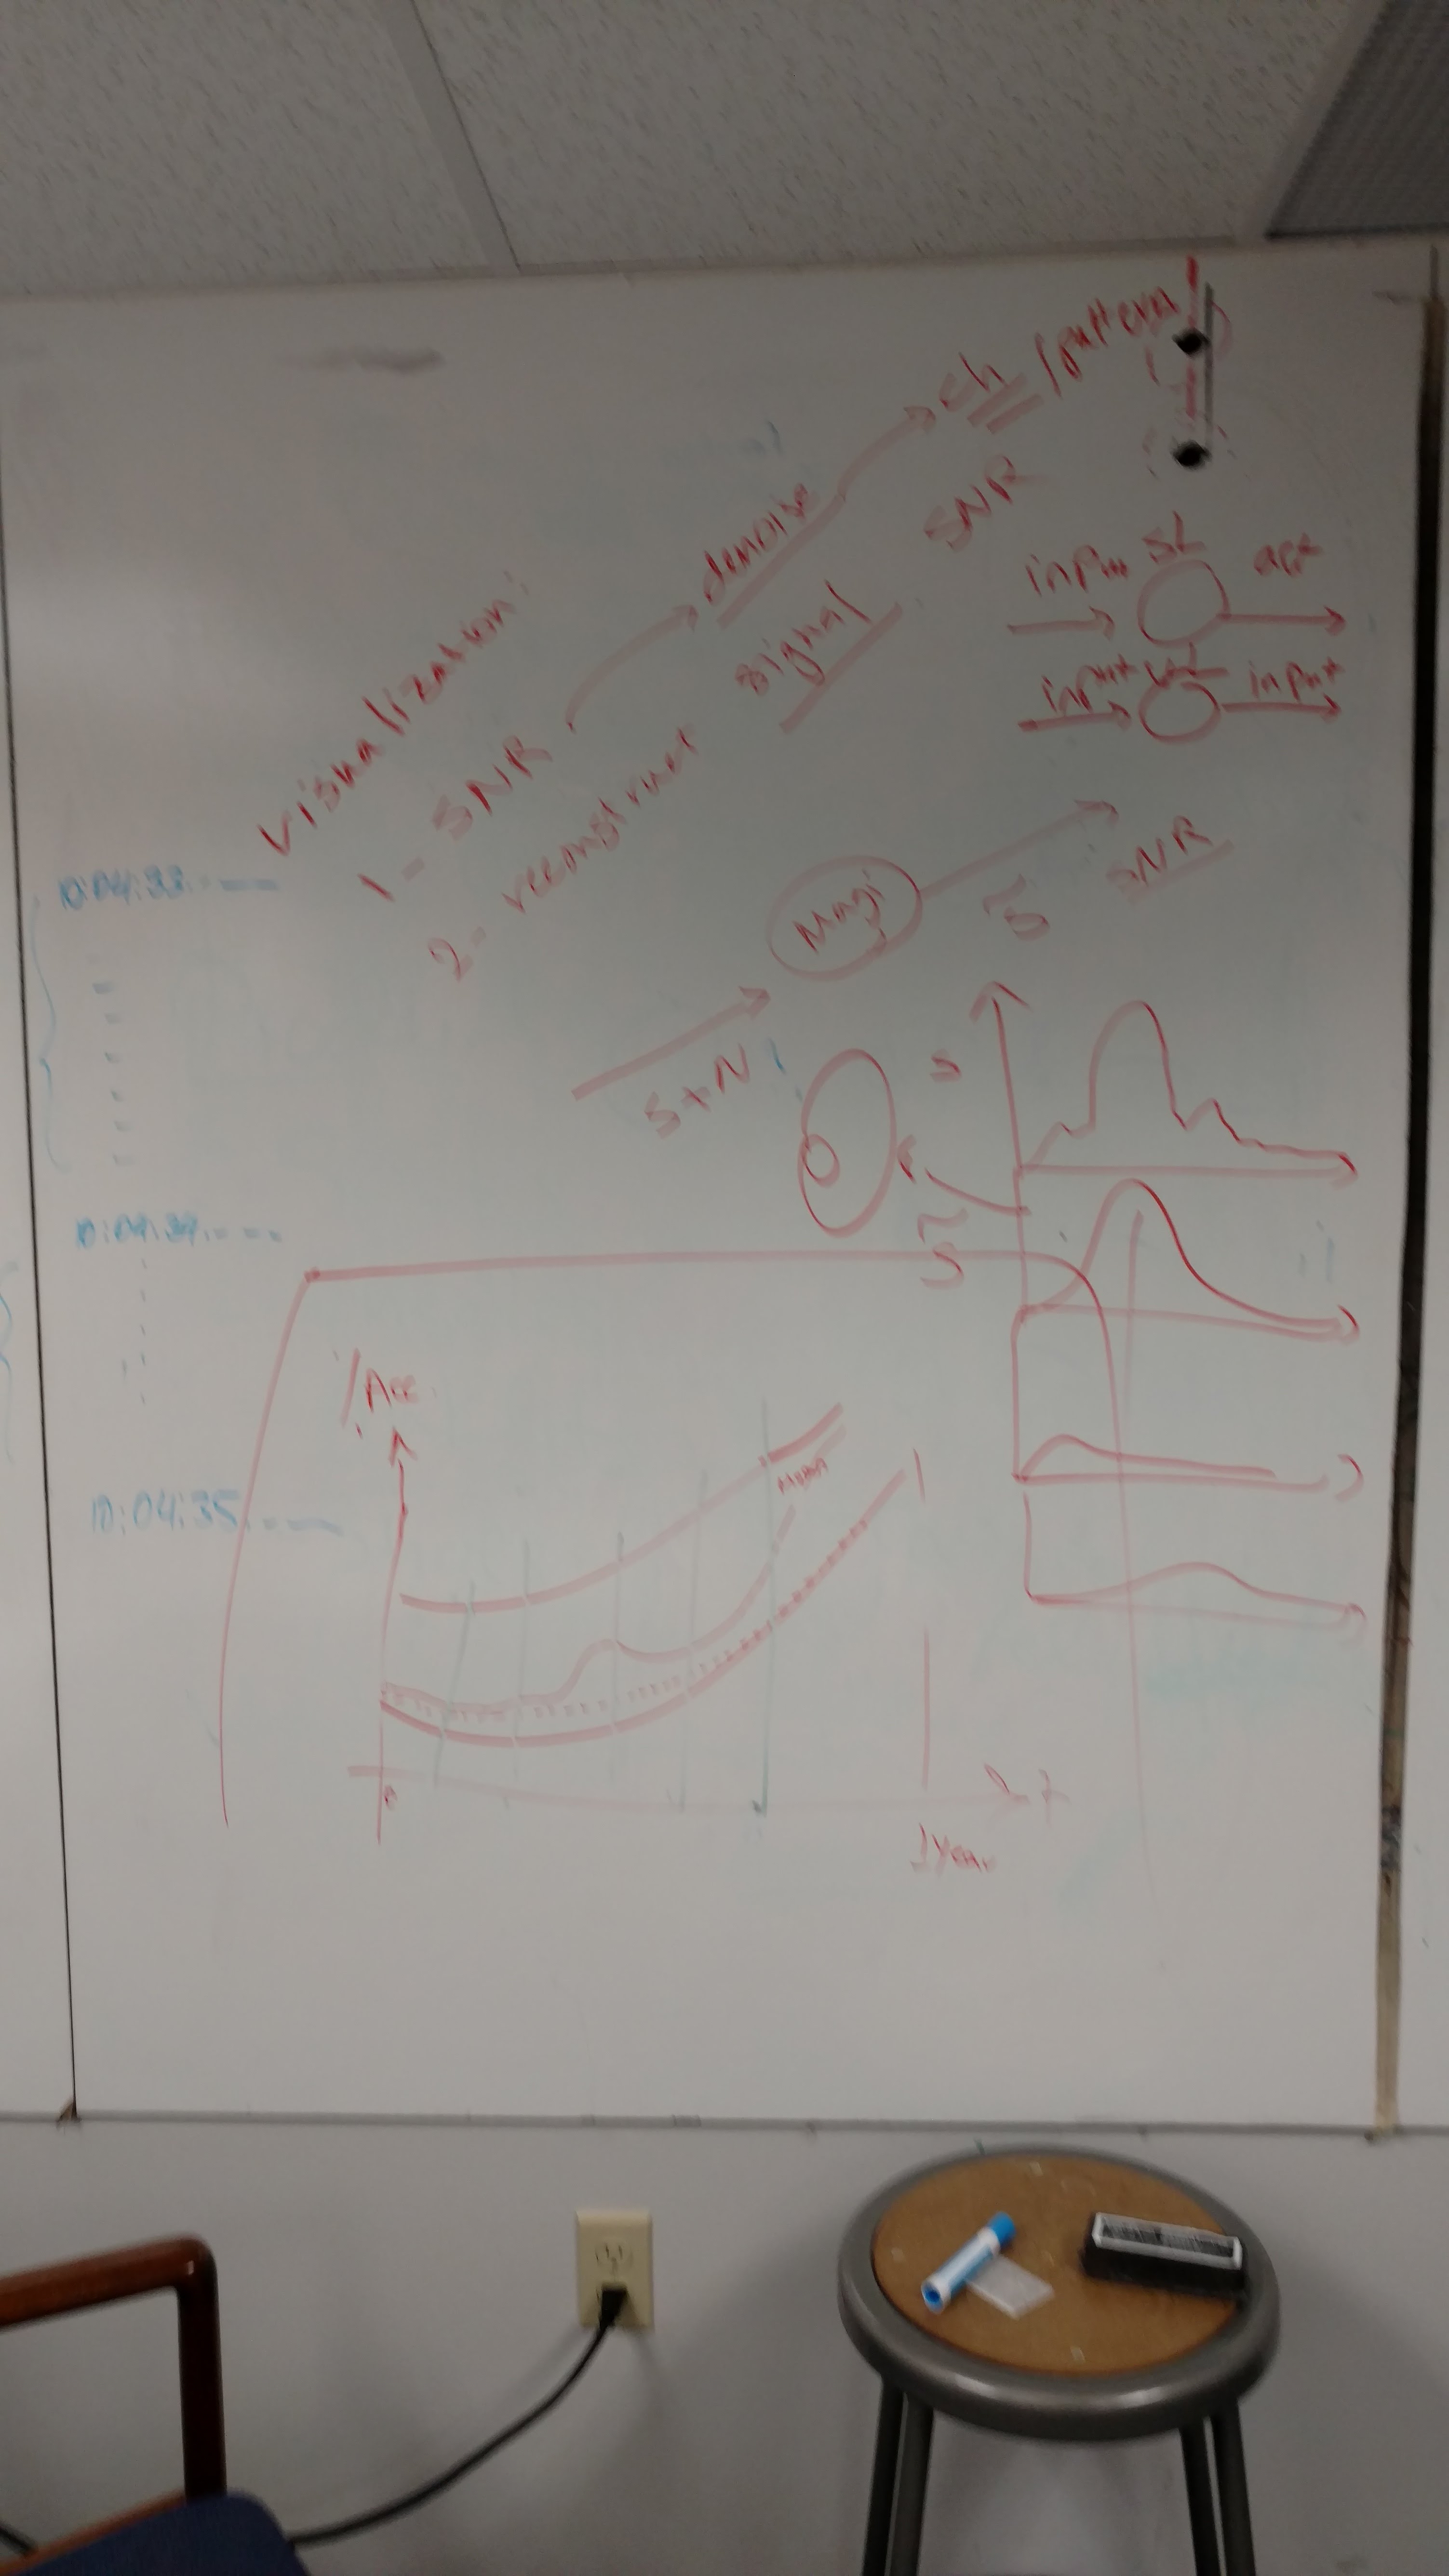 visualization:
1 - SNR denoise ch / pattern
2 - reconstruct signal SNR
input SL act
input input
S+N Magi S̃ SNR
S
S̃
10:04:33
10:04:34
10:04:35
Acc.
0
1 year